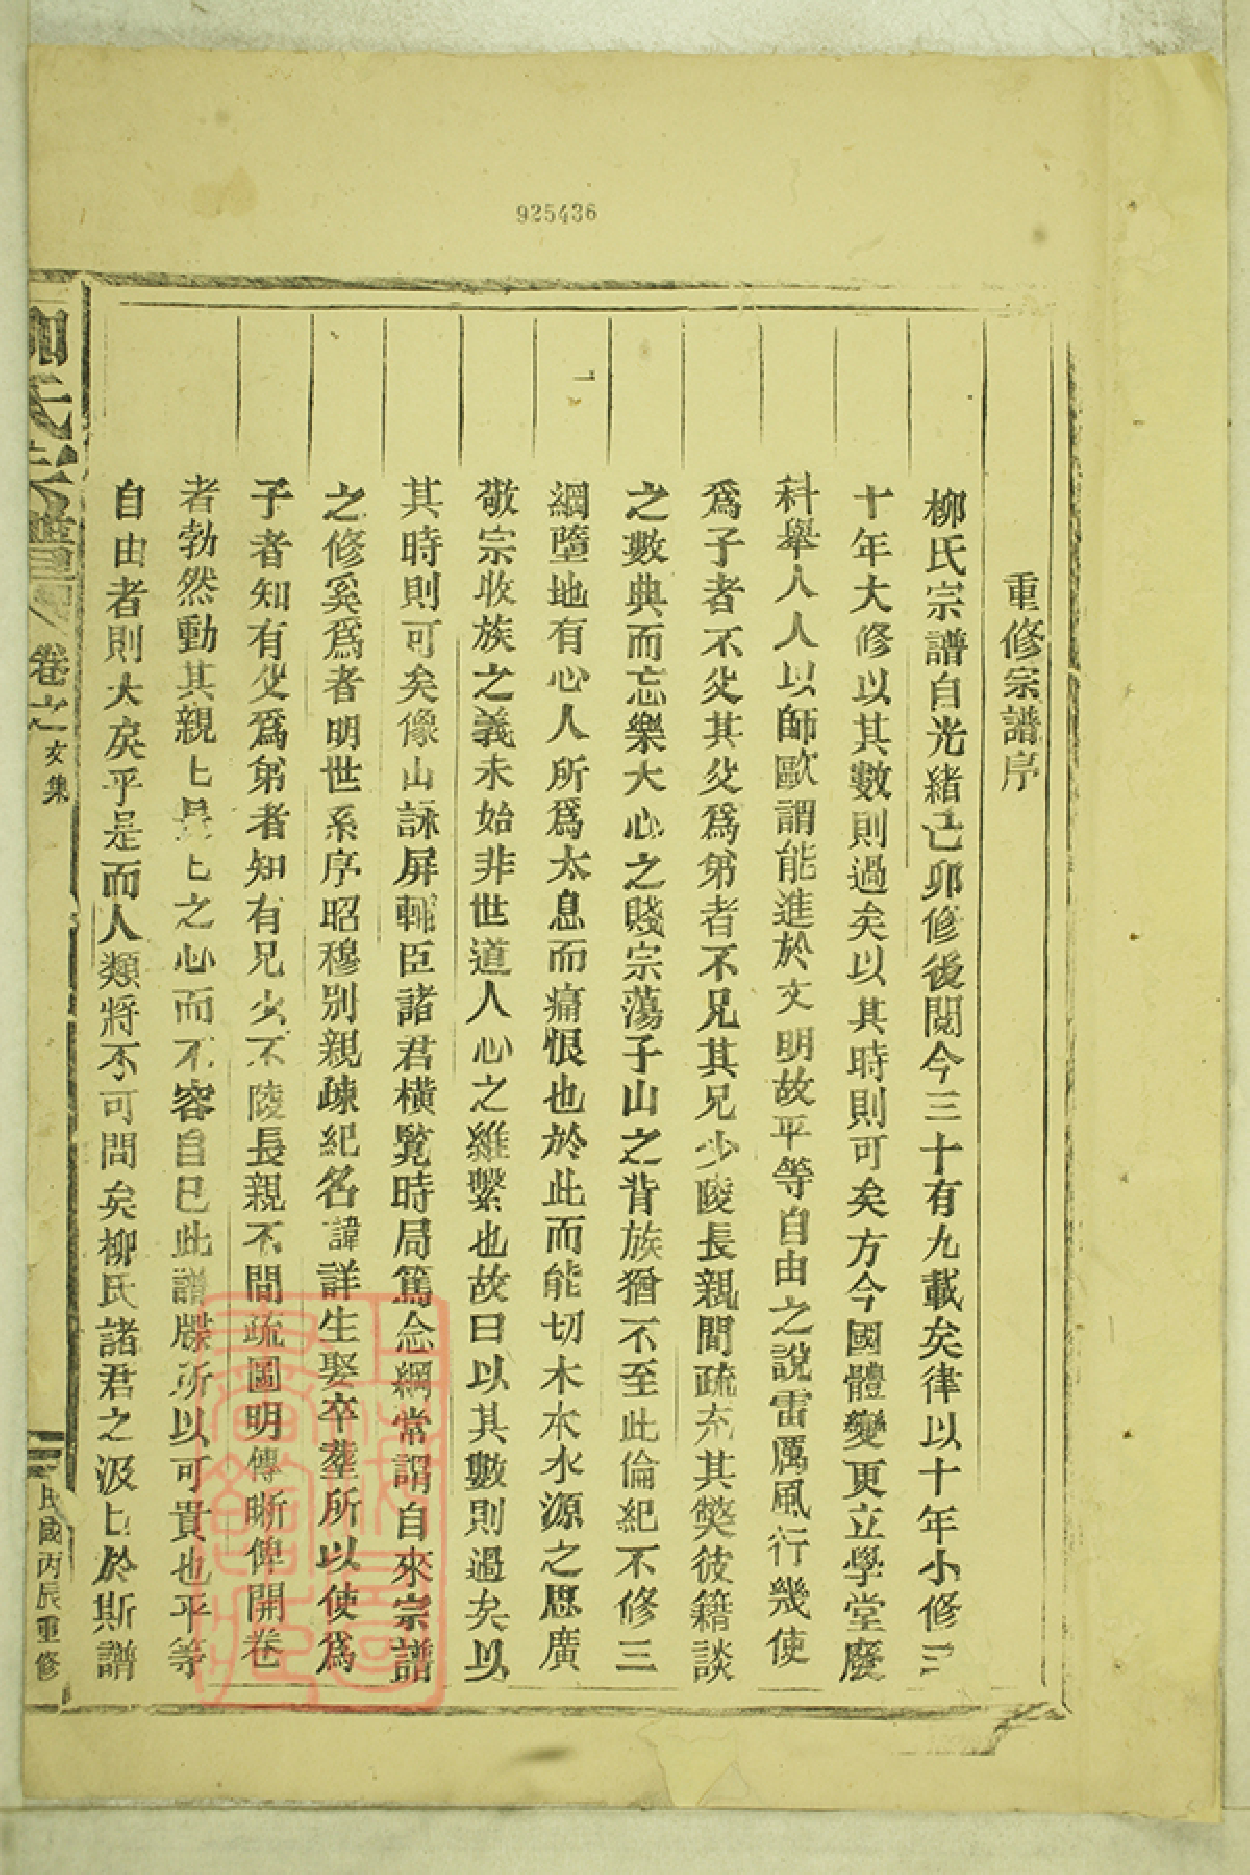 925436
重修宗譜序
柳氏宗譜自光緒己卯修後閱今三十有九載矣律以十年小修三
十年大修以其數則過矣以其時則可矣方今國體變更立學堂廢
科舉人人以師歐謂能進於文明故平等自由之說雷厲風行幾使
爲子者不父其父爲弟者不兄其兄少陵長親間疏充其獘彼籍談
之數典而忘樂大心之賤宗蕩子山之背族猶不至此倫紀不修三
綱墮地有心人所爲太息而痛恨也於此而能切木本水源之思廣
敬宗收族之義未始非世道人心之維繫也故曰以其數則過矣以
其時則可矣像山詠屏輔臣諸君橫覽時局篤念綱常謂自來宗譜
之修奚爲者明世系序昭穆別親疎紀名諱詳生娶卒塟所以使爲
子者知有父爲弟者知有兄少不陵長親不間疏圖明傳晰俾開卷
者勃然動其親上長上之心而不容自已此譜牒所以可貴也平等
自由者則大戾乎是而人類將不可問矣柳氏諸君之汲上於斯譜
柳氏宗譜
卷之 文集
民國丙辰重修